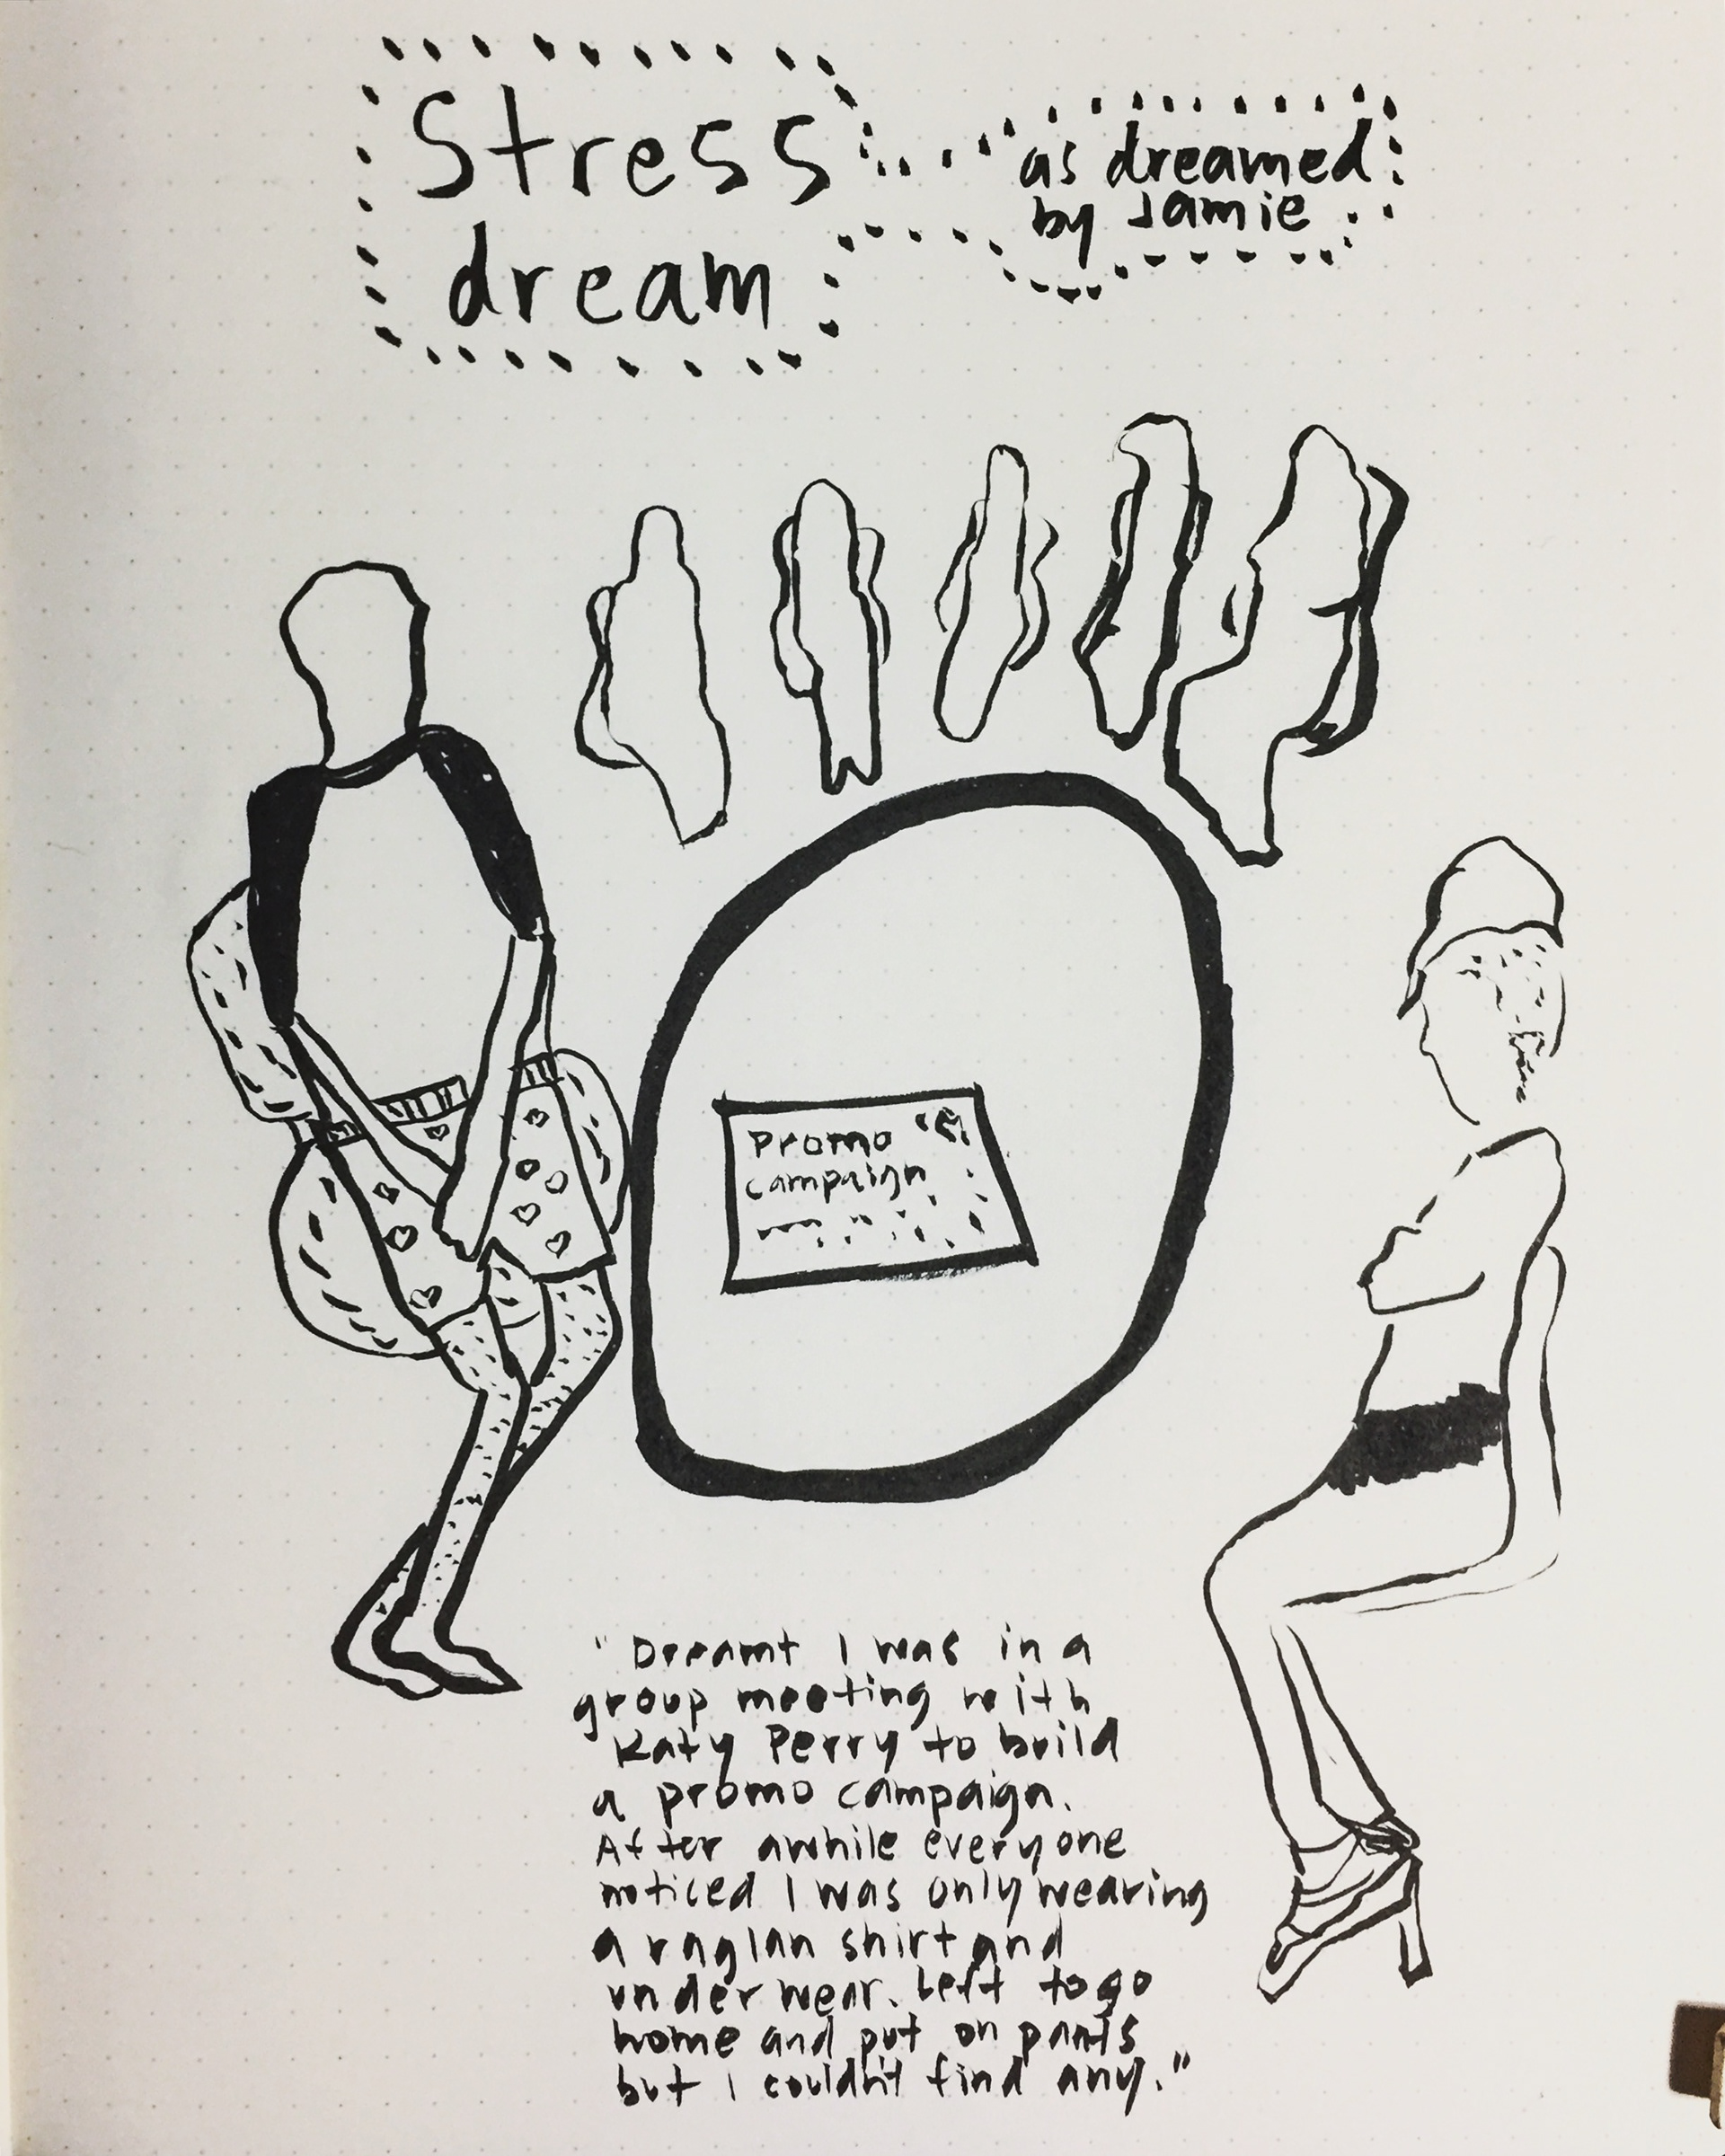 Stress
dream
as dreamed
by Jamie
Promo
campaign
"Dreamt I was in a
group meeting with
Katy Perry to build
a promo campaign.
After awhile everyone
noticed I was only wearing
a raglan shirt and
underwear. Left to go
home and put on pants
but I couldn't find any."